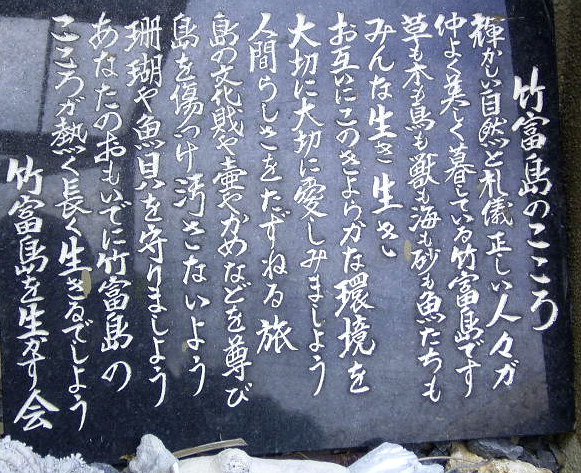 竹富島のこころ
輝かしい自然と礼儀正しい人々が
仲よく美しく暮している竹富島です
草も木も鳥も獣も海も砂も魚たちも
みんな生き生き
お互いにこのきよらかな環境を
大切に大切に愛しみましよう
人間らしさをたずねる旅
島の文化財や壷やかめなどを尊び
島を傷つけ汚さないよう
珊瑚や魚貝を守りましよう
あなたのおもいでに竹富島の
こころが熱く長く生きるでしよう
竹富島を生かす会